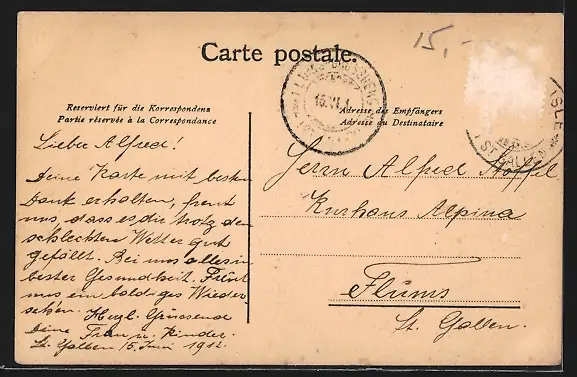 15.-
Carte postale.
Reserviert für die Korrespondenz
Partie réservée à la Correspondance
Adresse des Empfängers
Adresse du Destinataire
Liebe Alfred!
Deine Karte mit besten
Dank erhalten, freut
uns, dass es dir trotz dem
schlechten Wetter gut
gefällt. Bei uns alles in
bester Gesundheit.
uns ein baldiges Wieder
sehen. Herzl. Grüssend
Deine Frau u. Kinder.
St. Gallen 15. Juni 1912.
Herrn Alfred
Kurhaus Alpina
Flums
St. Gallen.
ST. GALLEN